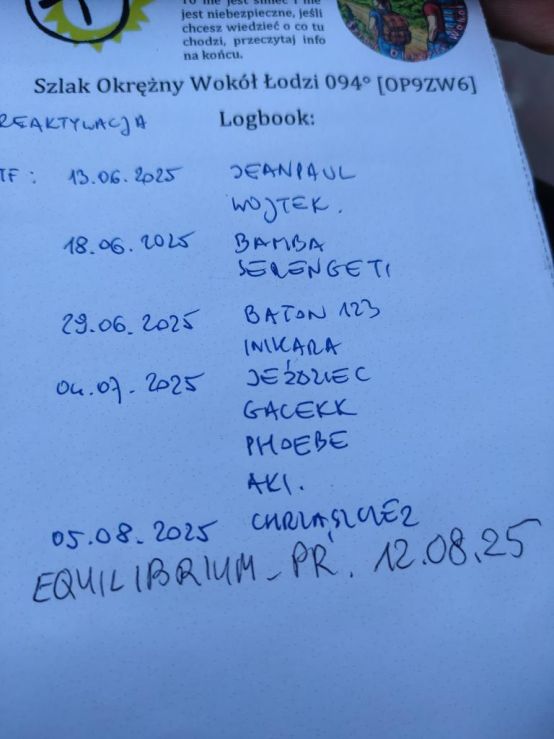 jest niebezpieczne, jeśli
chcesz wiedzieć o co tu
chodzi, przeczytaj info
na końcu.
Szlak Okrężny Wokół Łodzi 094° [OP9ZW6]
REAKTYWACJA Logbook:
TF : 13.06.2025 JEANPAUL
WOJTEK.
18.06.2025 BAMBA
SERENGETI
29.06.2025 BATON 123
INIKARA
04.07.2025 JEŹDZIEC
GACEKK
PHOEBE
AKI.
05.08.2025
EQUILIBRIUM_PR. 12.08.25